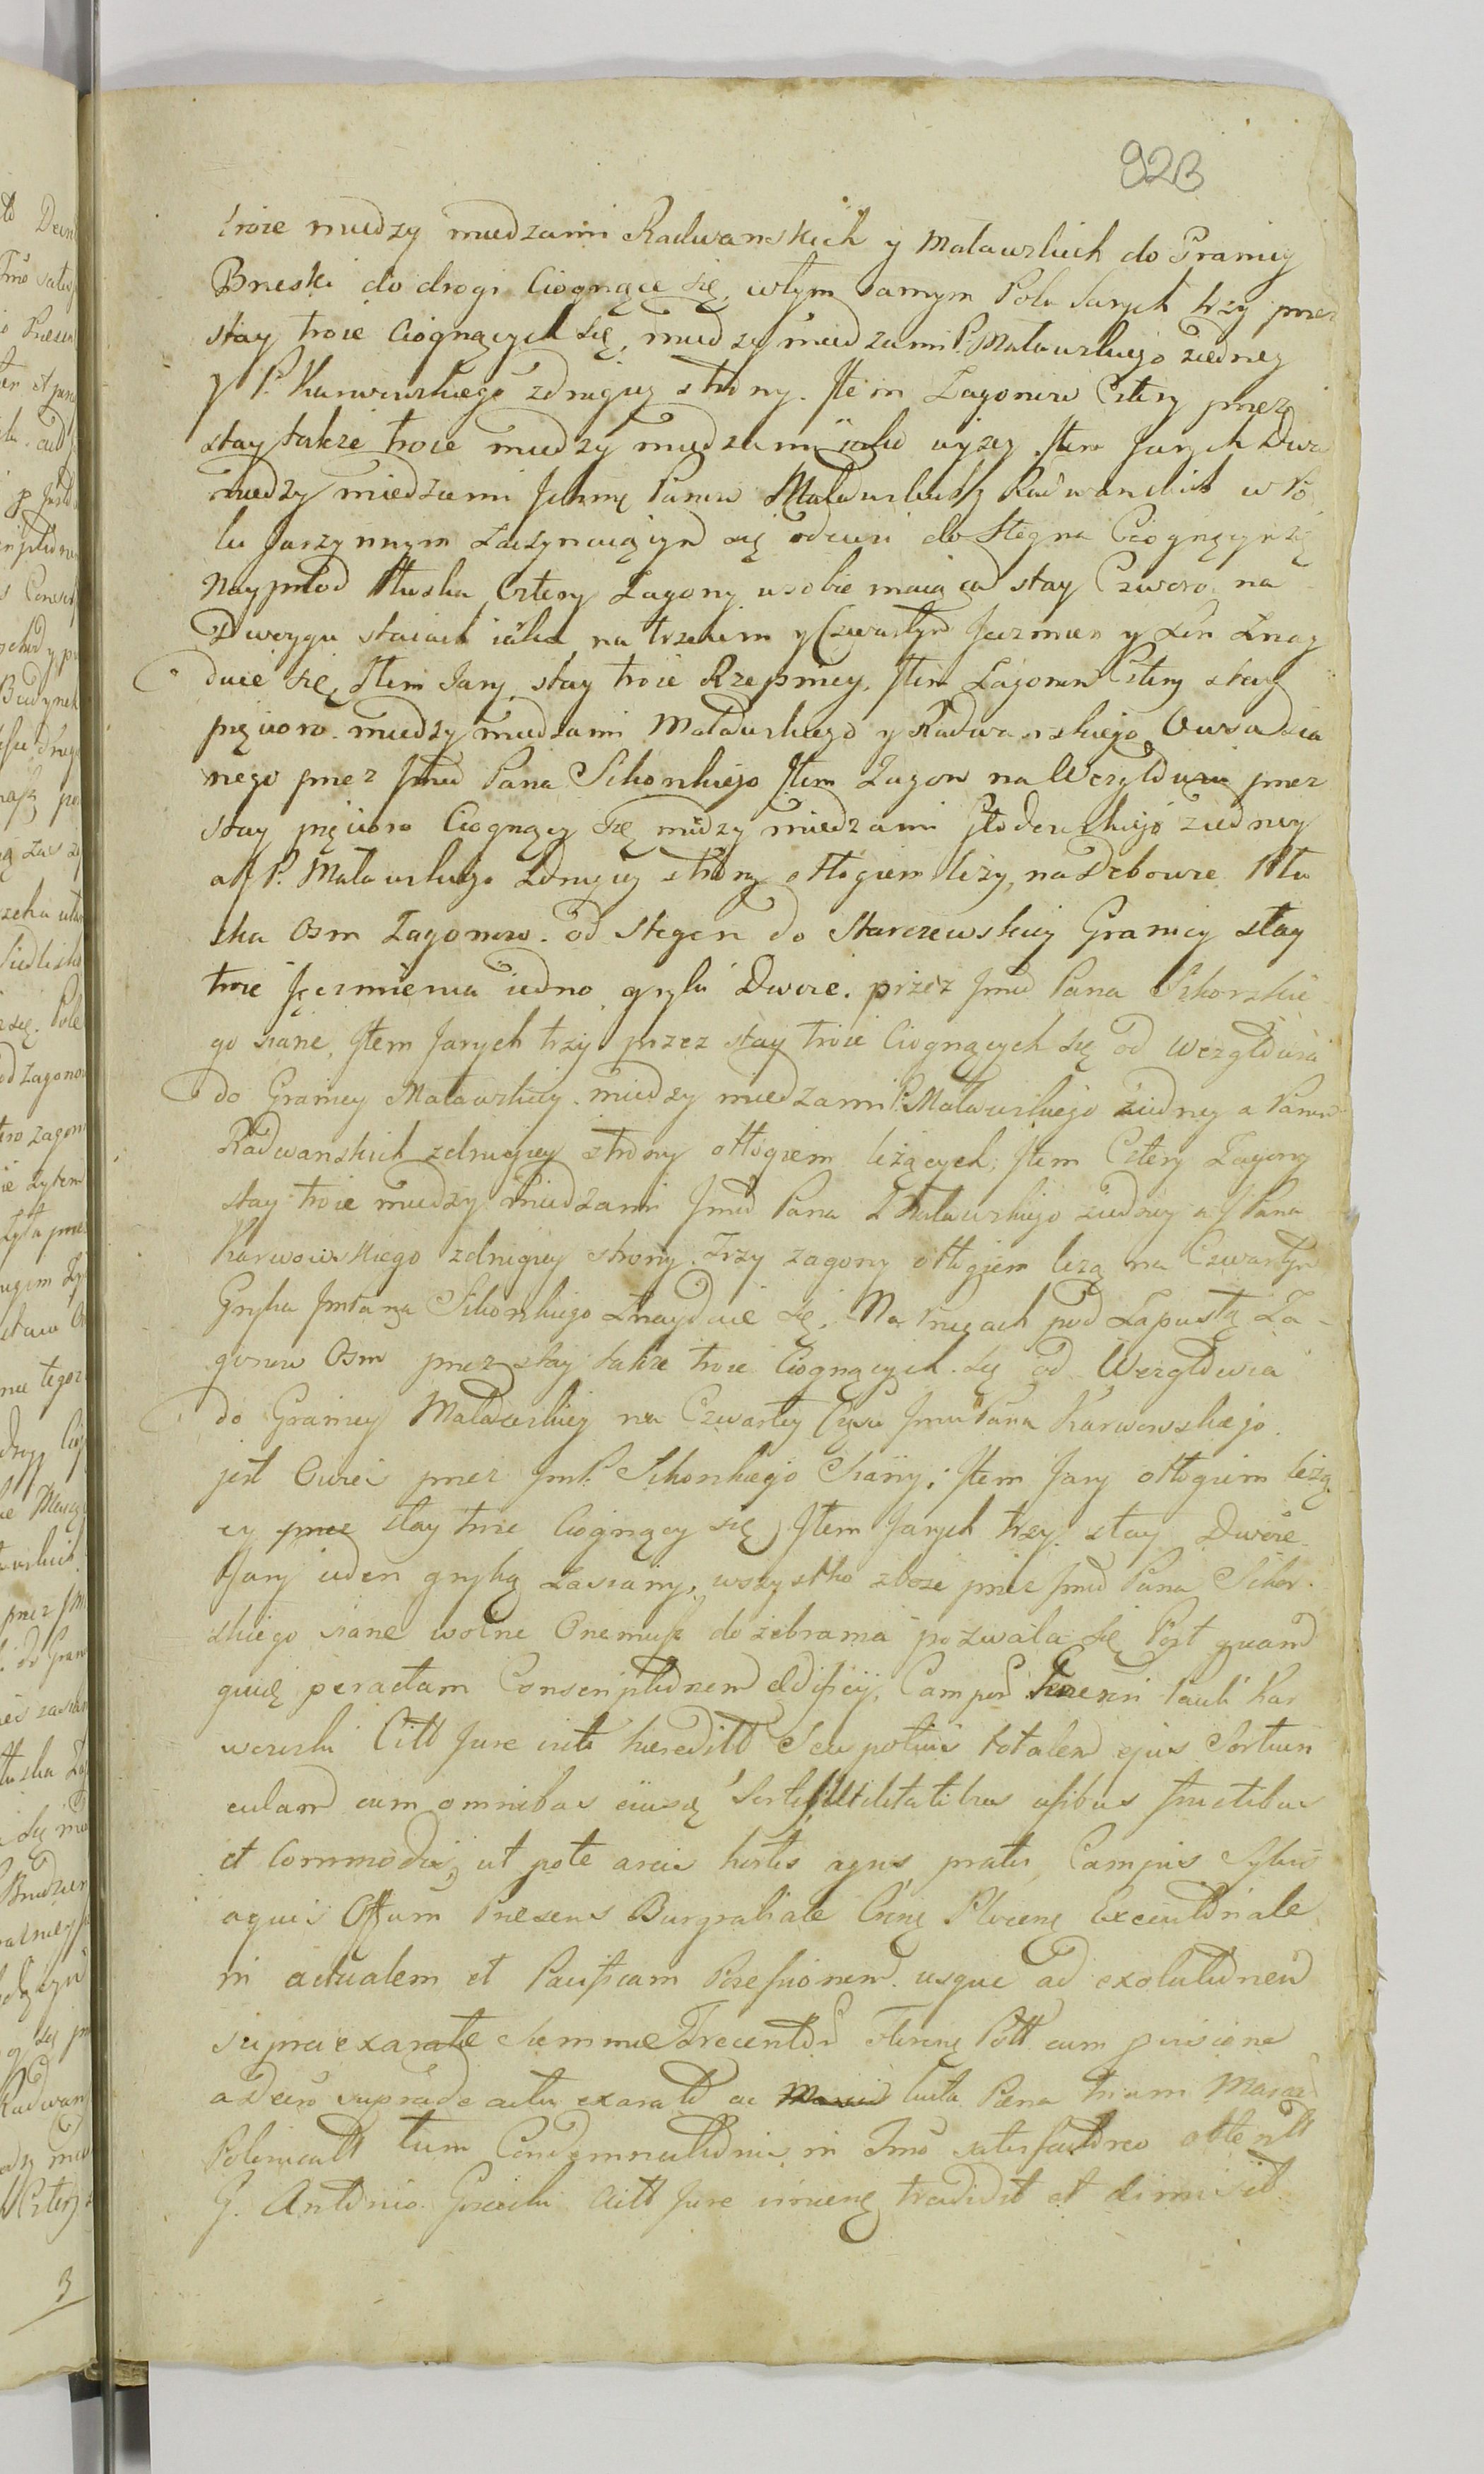 923
troie miedzy miedzami Radwanskich y Maławskich do Granicy
Bneski do drogi Ciognące się, wtym samym Polu Jarych trzy przez
stay troie Ciognących Się, miedzy miedzami P. Maławskiego ziedney
y P. Karwowskiego zdrugiey strony. Item Zagonow Cztery przez
stay także troie miedzy miedzami iako wyzey. Item Jarych Dwa
miedzy miedzami Ichmę Panow Maławskich y Radwanskich w Po
lu Jarzynnym Zaczynaiącym się od do Stegna Ciognącym się
Nayprzod Kłuska Cztery Zagony wsobie maiąca stay Czworo, na
Dwoygu staiach iako na trzecim y Czwartym Jęczmien y Len Znay
duie Się, Item Jary, stay troie Rzepnicy, Item Zagonow Cztery stay
pięcioro. miedzy miedzami Maławskiego y Radwanskiego Owsa Sia
nego przez Jmć Pana Sikorskiego Item Zagon na Wezgłowiu przez
stay pięcioro Ciognący Się miedzy miedzami ziedney
a J P. Maławskiego Zdrugiey strony odłogiem leży, na Dębowie Kłu
ska Osm Zagonow. od Stegen do Starczewskiey Granicy stay
troie Jęczmienia iedno gryki Dwoie. przez Jmć Pana Sikorskie
go siane, Item Jarych trzy przez stay troie Ciognących Się od Wezgłowia
do Granicy Maławskiey. miedzy miedzami P. Maławskiego ziedney a Panow
Radwanskich zdrugiey strony odłogiem leżących; Item Cztery Zagony
stay troie miedzy miedzami Jmć Pana Maławskiego ziedney a J Pana
Karwowskiego zdrugiey strony. Trzy zagony odłogiem leżą na Czwartym
Gryka Jmć Pana Sikorskiego Znayduie Się. Na pod Łapustą Za-
gonow Osm przez stay także troie Ciognących się od Wezgłowia
do Granicy Maławskiey na Czwartey Częsci Jmci Pana Karwowskiego
jest Owies przez Jmć P. Sikorskiego Siany; Item Jary odłogiem leżą
cy przez stay troie Ciognący się, Item Jarych trzy stay Dwoie
Jary ieden gryką Zasiany, wszystko zboże przez Jmć Pana Sikor
skiego siane wolne Onemuż do zebrania pozwala się Post quam
quidę peractam Conscriptionem Ædificÿ, Campor Pauli Kar
wowski Citt Jure victi heredittt Seu potius totalem ejus Sortium
culam cum omnibus eiusdę Sortis Utilitatibus usibus fructibus
et Commodis, ut pote areis hortis agris, pratis, Campis Sylvis
aquis Offum Præsens Burgrabiale Plocenę
in actualem et Pacificam Possessionem. usque ad exolutionem
supra exaratæ Summæ Trecentor Florenę Poll cum
adeiro supra de actu exarato ac luita Pæna trium Marcar
Polonicatt tum Condemnationis in Imo satisfactione obtentt
G. Antonio Citt Jure vincenę tradidit et dimisit
3